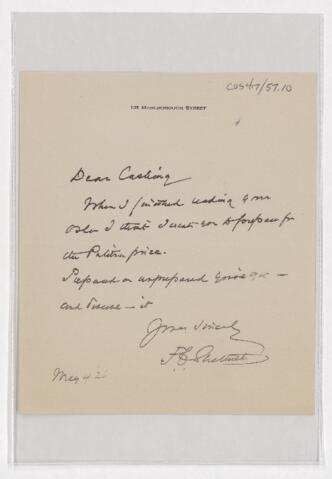 CUS417/57.10
MARLBOROUGH STREET
Dear Cushing
When I finished reading your
Osler I think I wrote you to prepare for
the Pulitzer prize.
Prepared or unprepared you've got
and deserve it
Yours sincerely
F. C. Shattuck
May 4 26